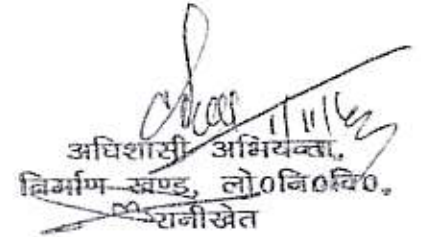 1/11/
अधिशासी अभियन्ता,
निर्माण खण्ड, लो०नि०वि०,
रानीखेत